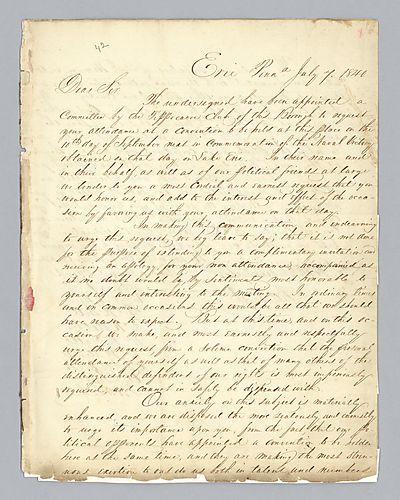 42
Erie Penn a July 7. 1840
Dear Sir
The undersigned have been appointed a
Committee by the Tippecanoe Club of this Borough to request
your attendance at a convention to be held at this place on the
10th day of September next in Commemoration of the Naval Victory
obtained on that day on Lake Erie. In their name and
in their behalf, as well as of our political friends at large
we tender to you a most Cordial and earnest request that you
would honor us, and add to the interest and effect of the occa-
sion by favoring us with your attendance on that day.
In making this communication, and endeavoring
to urge this request, we beg leave to say, that it is not done
for the purpose of extending to you a complimentary invitation and
receiving an apology for your non attendance, accompanied as
it no doubt would be, by sentiments most honorable to
yourself and interesting to the meeting. In ordinary times
and on common occasions this would be all that we should
have reason to expect. But at this time and on this oc-
casion we make, and must earnestly and respectfully
urge this request, from a solemn conviction that the personal
attendance of yourself as well as that of many others of the
distinguished defenders of our rights is most imperiously
required, and cannot in safety be dispensed with.
Our anxiety on this subject is materially
enhanced, and we are disposed the more zealously and earnestly
to urge its importance upon you, from the fact that our po-
litical opponents have appointed a convention to be holden
here at the same time, and they are making the most stren-
uous exertion to out do us both in talents and numbers